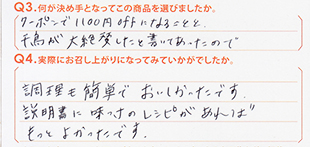 Q3.何が決め手となってこの商品を選びましたか。
クーポンで1100円offになることと、
千鳥が大絶賛したと書いてあったので
Q4.実際にお召し上がりになってみていかがでしたか。
調理も簡単でおいしかったです。
説明書に味つけのレシピがあれば
もっとよかったです。